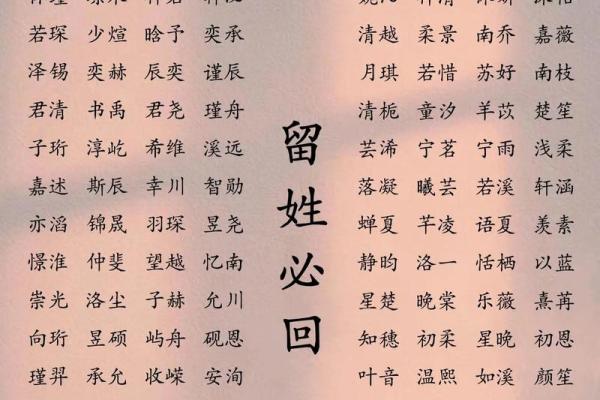 若琛 少煊 晗予 奕承
泽锡 奕赫 辰奕 谨辰
君清 书禹 君尧 瑾舟
子珩 淳屹 希维 溪远
嘉述 斯辰 幸川 智勋
亦滔 锦晟 羽琛 昱尧
憬淮 仲斐 望越 忆南
崇光 洛尘 子赫 允川
向珩 昱硕 屿舟 砚恩
瑾羿 承允 收嵘 安洵
留姓必回
清越 柔景 南乔 嘉薇
月琪 若惜 苏好 南枝
清栀 童汐 羊苡 楚笙
芸浠 宁茗 宁雨 浅柔
落凝 曦芸 若溪 轩涵
蝉夏 芊凌 语夏 羡素
静昀 洛一 恬栖 以蓝
星楚 晚棠 乐薇 熹苒
知穗 初柔 星晚 初恩
叶音 温熙 如溪 颜笙